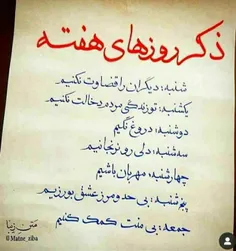 ذکر روزهای هفته
شنبه: دیگران را قضاوت نکنیم
یکشنبه: تو زندگی مردم دخالت نکنیم
دوشنبه: دروغ نگیم
سه شنبه: دلی رو نرنجانیم
چهارشنبه: مهربان باشیم
پنج شنبه: بی حد و مرز عشق بورزیم
جمعه: بی منت کمک کنیم
متن زیبا
@Matne_ziba